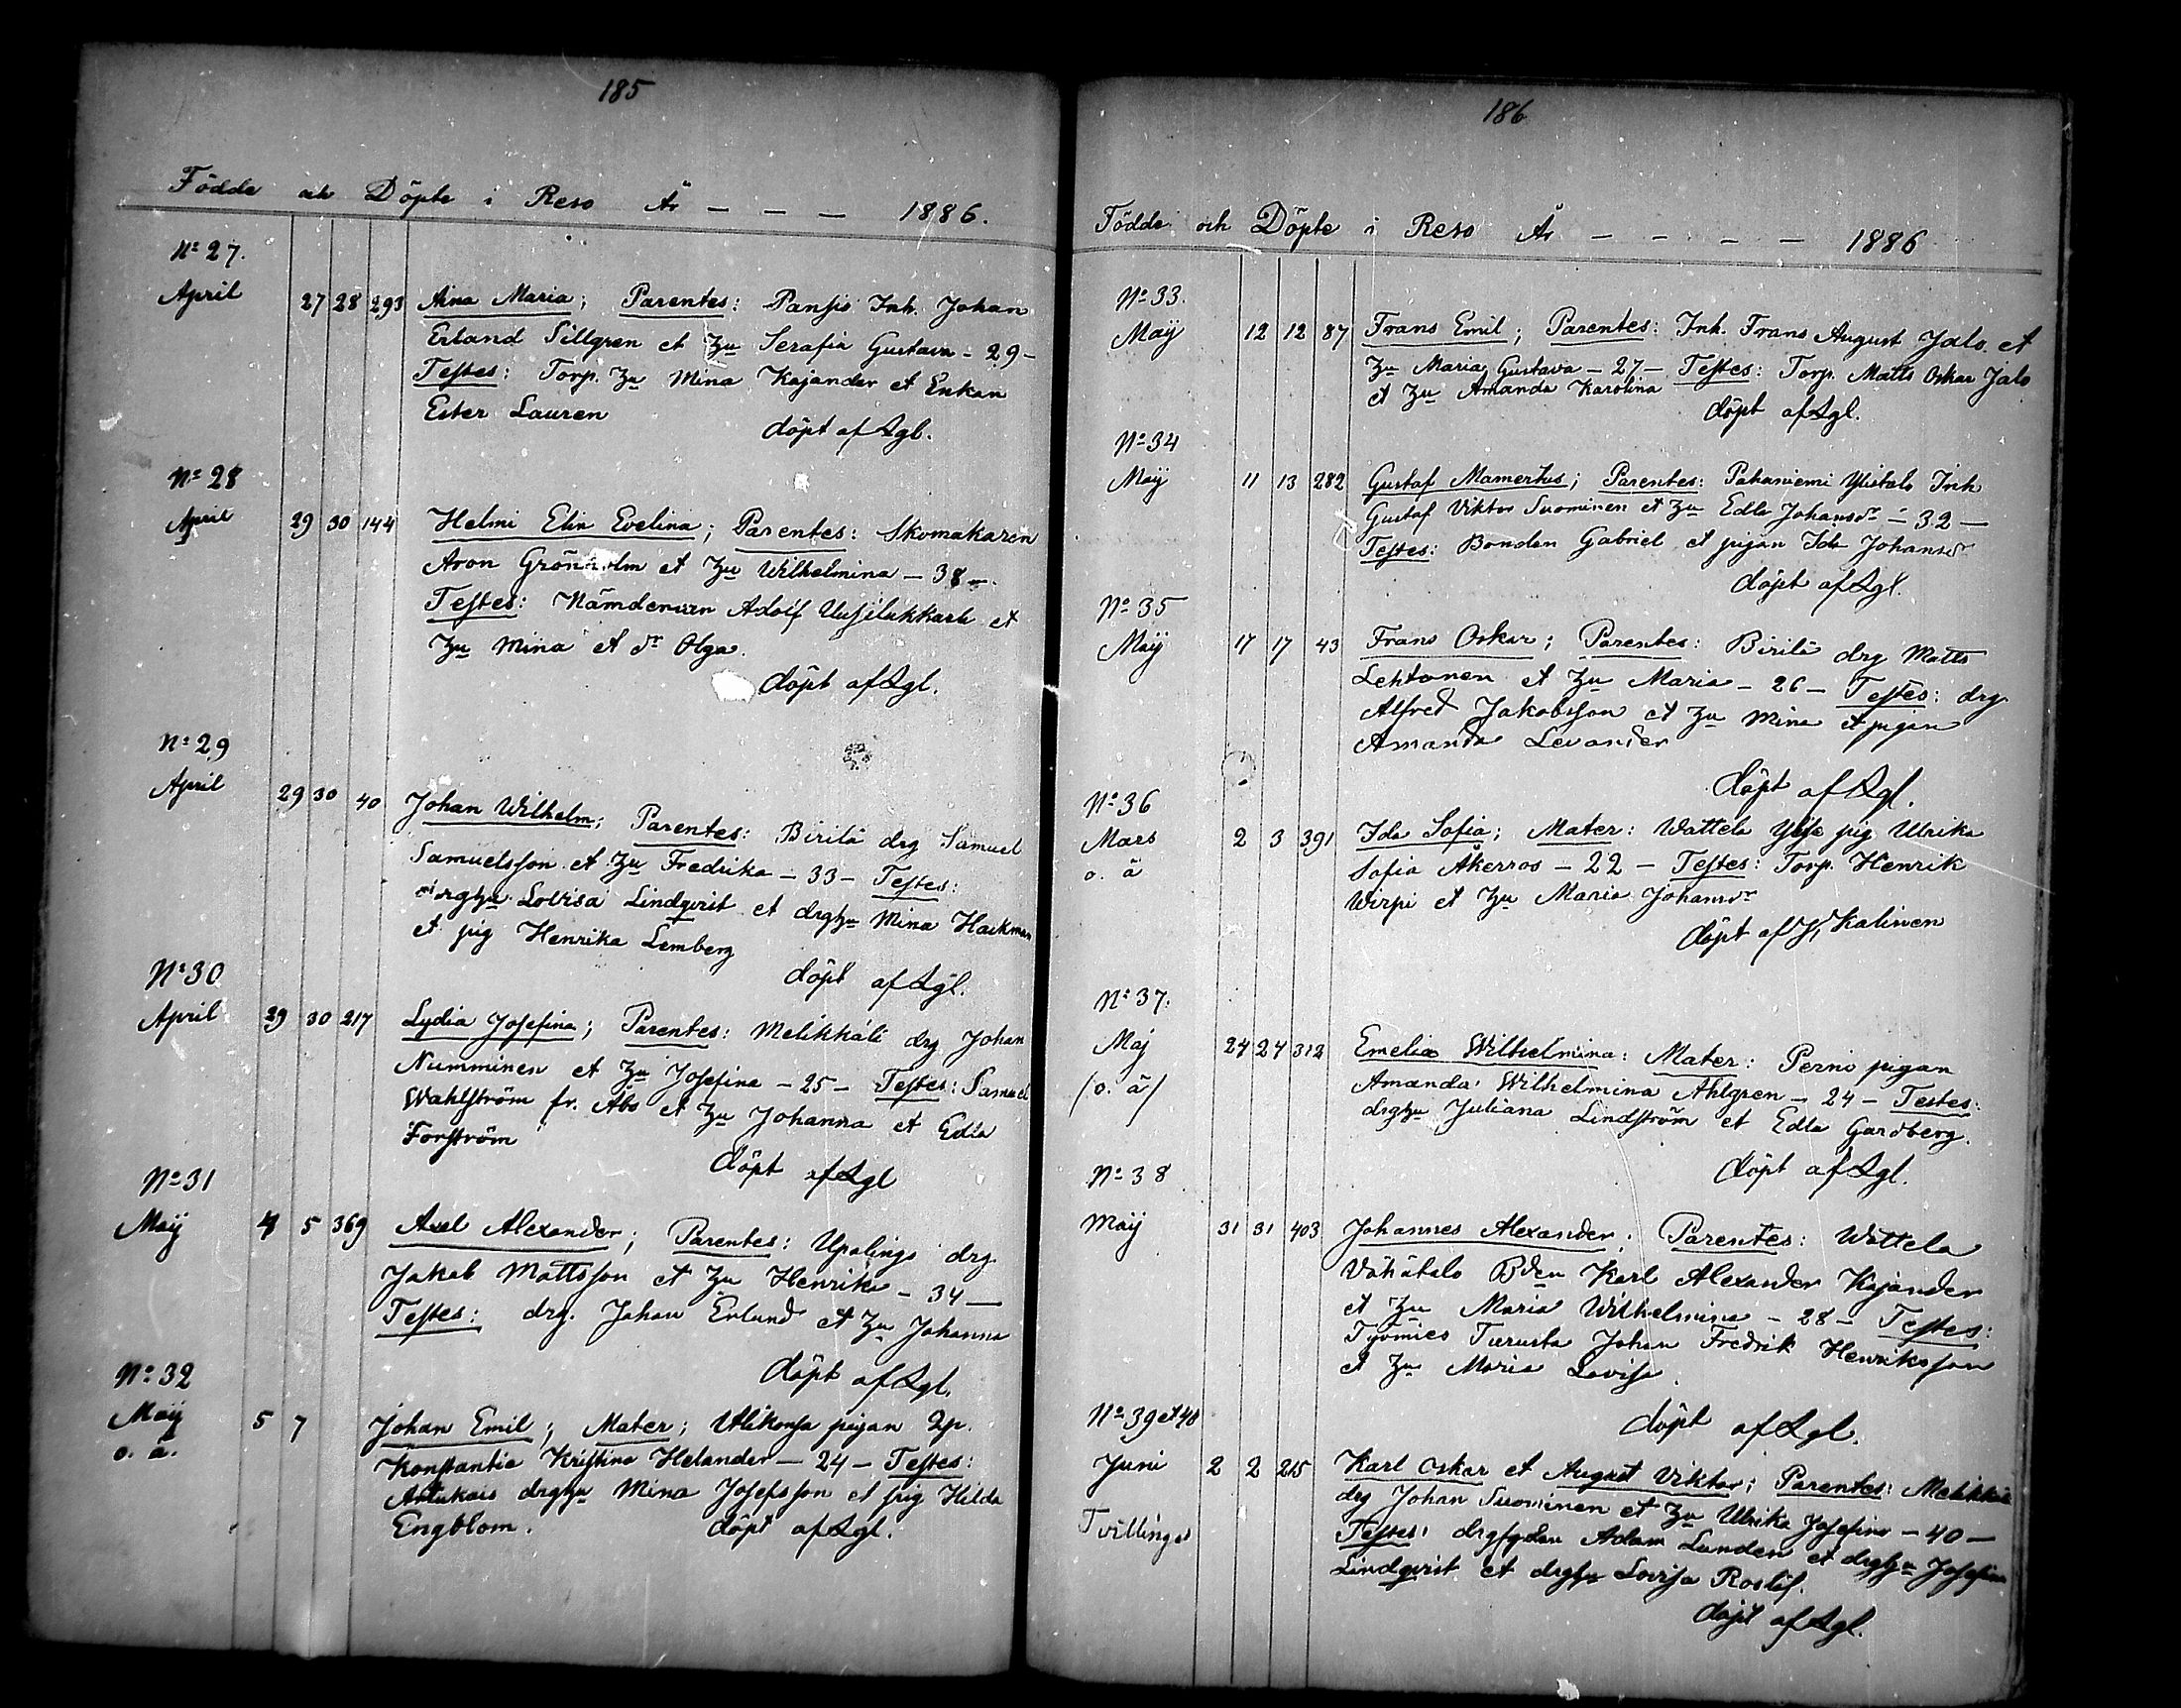 185
Födde och Döpte i Reso År — — — 1886.
No 27.
April 27 28 293 Aina Maria; Parentes: Pansio Inh. Johan
Erland Sillgren et Hu Serafia Gustava - 29 -
Testes: Torp. Hu Mina Kajander et Enkan
Ester Lauren
döpt af Lgl.
No 28
April 29 30 144 Helmi Elin Evelina; Parentes: Skomakaren
Aron Grönholm et Hu Wilhelmina - 38 -
Testes: Nämdemern Adolf et
Hu Mina et dr Olga.
döpt af Lgl.
No 29
April 29 30 40 Johan Wilhelm; Parentes: Birilä drg Samuel
Samuelsson et Hu Fredrika - 33 - Testes:
drghu Lovisa Lindqvist et drghu Mina Hackman
et pig Henrika Lemberg
döpt af Lgl.
No 30
April 29 30 217 Lydia Josefina; Parentes: Melikkälä drg Johan
Numminen et Hu Josefina - 25 - Testes: Samuel
Wahlström fr. Åbo et Hu Johanna et Edla
Forsström
döpt af Lgl
No 31
Maij 4 5 369 Axel Alexander; Parentes: Upalinge drg
Jakob Mattsson et Hu Henrika - 34 -
Testes: drg. Johan Erlund et Hu Johanna
döpt af Lgl.
No 32
Maij 5 7 Johan Emil; Mater; pigan
o. ä. Konstantia Kristina Helander - 24 - Testes:
Artukais drghu Mina Josefsson et pig Hilda
Engblom. döpt af Lgl.
186
Födde och Döpte i Reso År — — — — 1886
No 33.
Maij 12 12 87 Frans Emil; Parentes: Inh. Frans August Jalo et
Hu Maria Gustava - 27 - Testes: Torp. Matts Oskar Jalo
et Hu Amanda Karolina
döpt af Lgl.
No 34
Maij 11 13 282 Gustaf Mamertus; Parentes: Pahaniemi Ylitalo Inh
Gustaf Viktor Suominen et Hu Edla Johansdr - 32 -
Testes: Bonden Gabriel et pigan Ida Johansdr
döpt af Lgl.
No 35
Maij 17 17 43 Frans Oskar; Parentes: Birilä drg Matts
Lehtonen et Hu Maria - 26 - Testes: drg
Alfred Jakobsson et Hu Mina et pigan
Amanda Levander
döpt af Lgl.
No 36
Mars 2 3 391 Ida Sofia; Mater: Wattela pig Ulrika
o. ä Sofia Åkerros - 22 - Testes: Torp. Henrik
Wirpi et Hu Maria Johansdr
döpt af J. Kalinen
No 37.
Maj 24 24 312 Emelia Wilhelmina: Mater: Perno pigan
(o. ä) Amanda Wilhelmina Ahlgren - 24 - Testes:
drghu Juliana Lindström et Edla Gardberg.
döpt af Lgl.
No 38
Maij 31 31 403 Johannes Alexander; Parentes: Wattela
Vähätalo Bden Karl Alexander Kajander
et Hu Maria Wilhelmina - 28 - Testes:
Työmies Turusta Johan Fredrik Henriksson
et Hu Maria Lovisa.
döpt af Lgl.
No 39 et 40
Juni 2 2 215 Karl Oskar et August Viktor; Parentes: Melikkälä
drg Johan Suominen et Hu Ulrika Josefina - 40 -
Tvillingar Testes: Adam Lunden et drghu Josefina
Lindqvist et drghu Lovisa Roslöf.
döpt af Lgl.